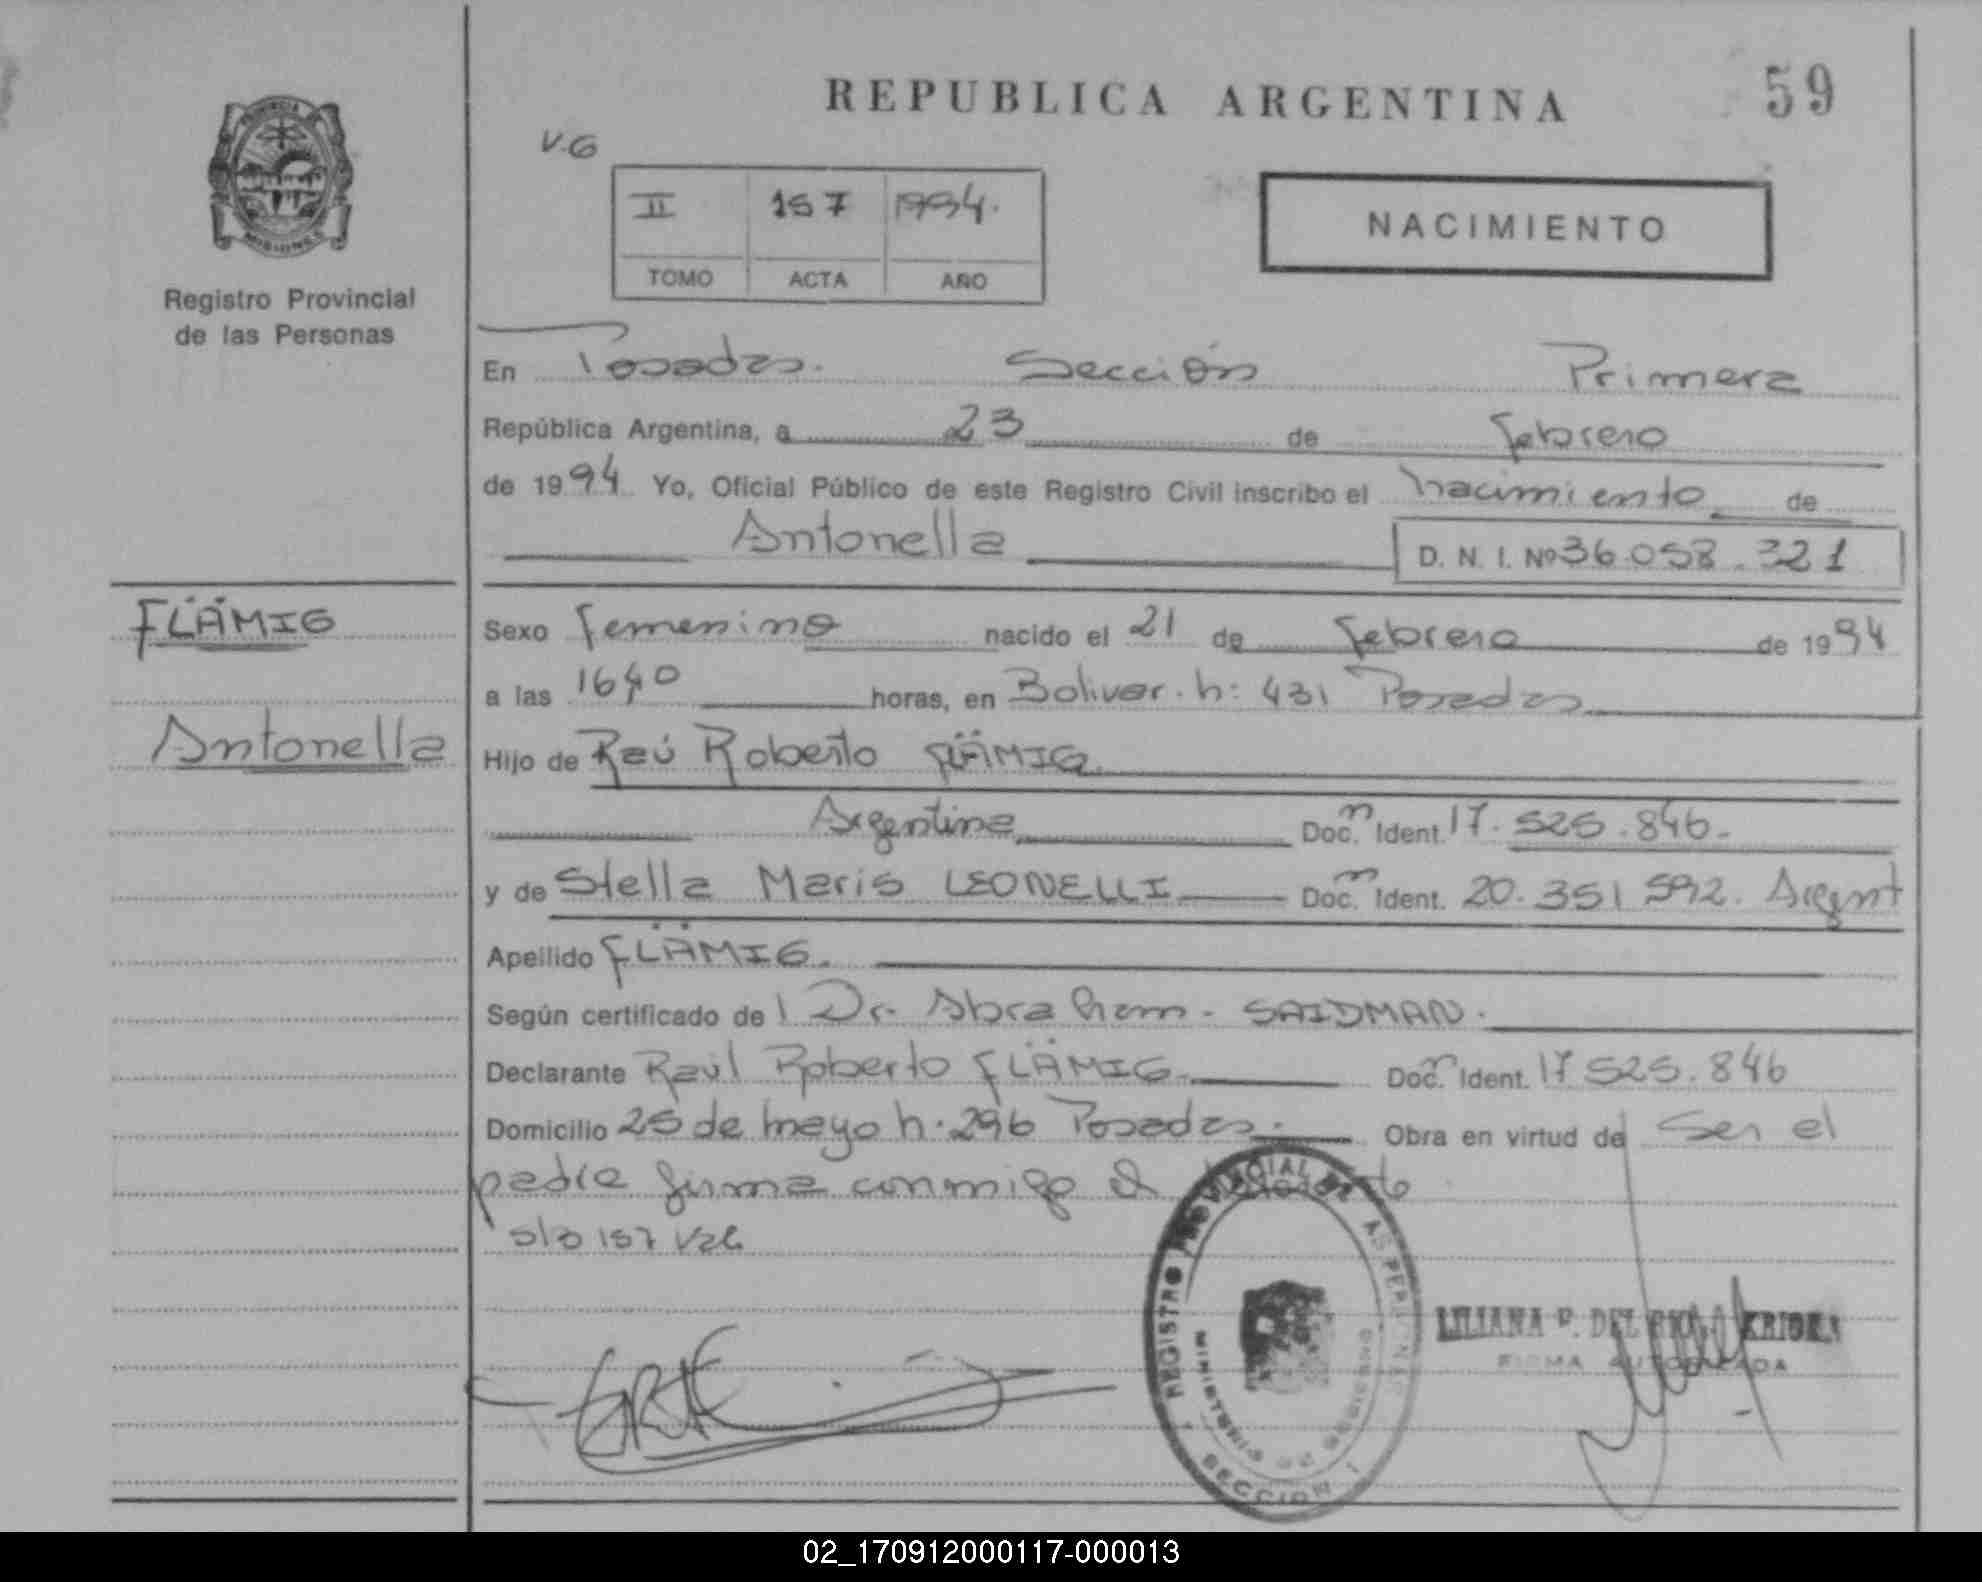 REPUBLICA ARGENTINA
59
V.G
II 157 1994.
TOMO ACTA AÑO
NACIMIENTO
PROVINCIA
MISIONES
Registro Provincial
de las Personas
En Posadas. Sección Primera
República Argentina, a 23 de febrero
de 1994 Yo, Oficial Público de este Registro Civil inscribo el nacimiento de
Antonella
D. N. I. Nº 36.058.321
FLÄMIG
Antonella
Sexo femenino nacido el 21 de febrero de 1994
a las 1640 horas, en Bolivar. h: 431 Posadas
Hijo de Raú Roberto FLÄMIG
Argentina Doc. n Ident. 17.525.846.
y de Stella Maris LEONELLI Doc. n Ident. 20.351 592. Argent
Apellido FLÄMIG.
Según certificado del Dr. Abraham. SAIDMAN.
Declarante Raúl Roberto FLÄMIG Doc. n Ident. 17 525.846
Domicilio 25 de mayo h. 296 Posadas. Obra en virtud de ser el
padre firma conmigo el
157
REGISTRO PROVINCIAL DE LAS PERSONAS
MINISTERIO DE GOBIERNO
SECCION 1
LILIANA F. DEL
FIRMA AUTORIZADA
02_170912000117-000013